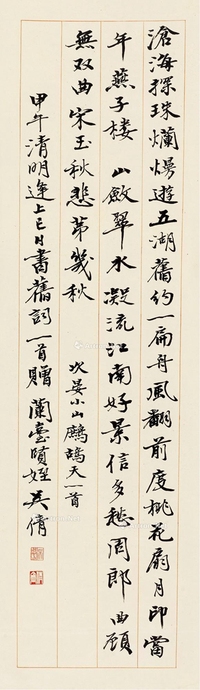 滄海探珠爛熳遊五湖舊約一扁舟風翻前度桃花扇月印當
年燕子樓 山斂翠水凝流江南好景信多愁周郎曲顧
無双曲宋玉秋悲第幾秋 次晏小山鷓鴣天一首
甲午清明連上巳日書舊詞一首贈 蘭臺賢姪 吳倩